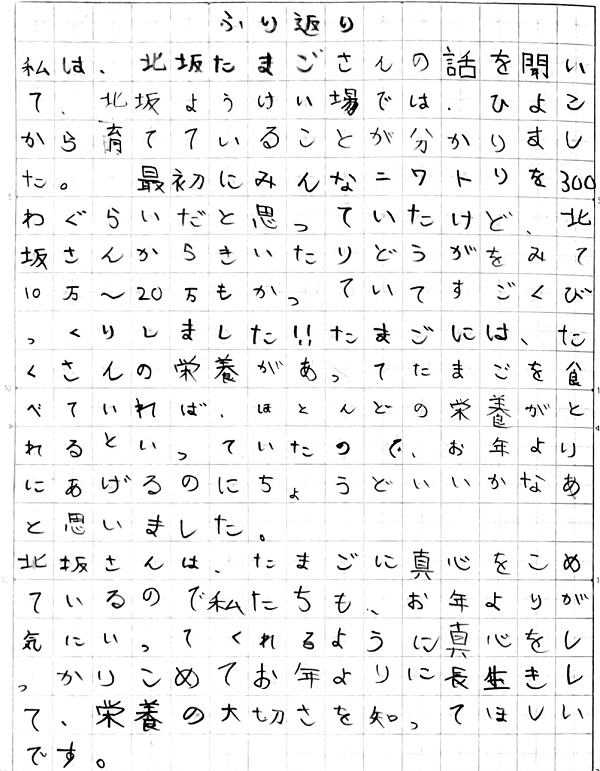 ふり返り
私は、北坂たまごさんの話を聞い
て、北坂ようけい場では、ひよこ
から育てていることが分かりまし
た。 最初にみんなニワトリを300
わぐらいだと思っていたけど、北
坂さんからきいたりどうがをみて
10万〜20万もかっていてすごくび
っくりしました!!たまごには、た
くさんの栄養があってたまごを食
べていれば、ほとんどの栄養がと
れるといっていたので、お年より
にあげるのにちょうどいいかなあ
と思いました。
北坂さんは、たまごに真心をこめ
ているので私たちも、お年よりが
気にいってくれるように真心をし
っかりこめてお年よりに長生きし
て、栄養の大切さを知ってほしい
です。